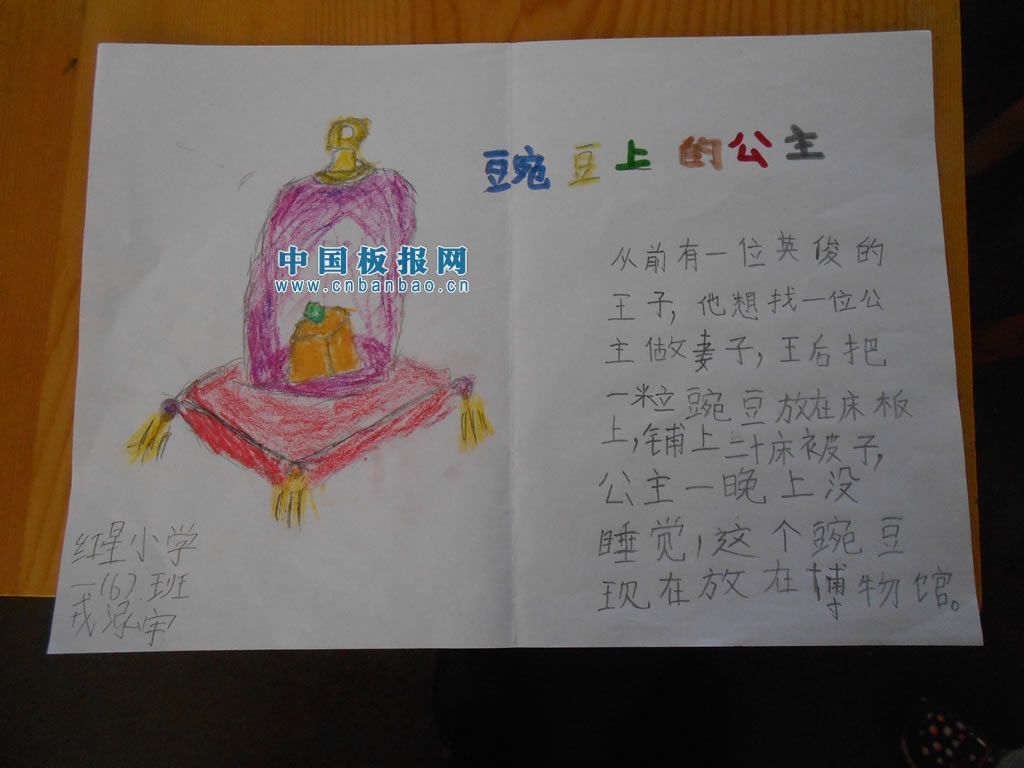 豌豆上的公主
中国板报网
www.cnbanbao.cn
从前有一位英俊的
王子，他想找一位公
主做妻子，王后把
一粒豌豆放在床板
上，铺上二十床被子，
公主一晚上没
睡觉，这个豌豆
现在放在博物馆。
红星小学
一(6)班